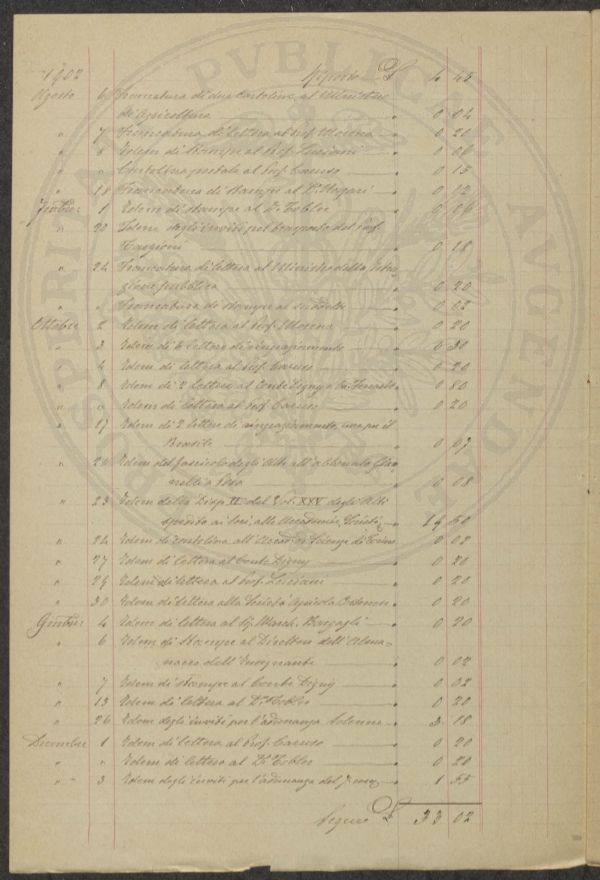 1902 Riporto £ 4 45
Agosto 6 Francatura di due cartoline al Ministero
di Agricoltura 0 04
" 7 Francatura di lettera al Prof. Morena 0 20
" 8 Idem di stampe al Prof. Luciani 0 06
" " Cartolina postale al Prof. Caruso 0 15
" 18 Francatura di stampe al Dr. 0 02
7mbre 1 Idem di stampe al Dr. Tobler 0 06
" 22 Idem degli inviti pel trasporto del Prof.
Targioni 0 18
" 24 Francatura di lettera al Ministro della Istru
zione pubblica 0 20
" " Francatura di stampe al suddetto 0 02
Ottobre 2 Idem di lettera al Prof. Morena 0 20
" 3 Idem di lettere di ringraziamento 0 30
" 4 Idem di lettera al Prof. Caruso 0 20
" 8 Idem di 2 lettere al Conte Digny e 0 80
" " Idem di lettera al Prof. Caruso 0 20
" 17 Idem di 2 lettere di ringraziamento, una per il
Brasile 0 07
" 22 Idem del fascicolo degli Atti all'abbonato
0 08
" 23 Idem della Disp. II del Vol. XXV degli Atti
spedito ai Soci, alle Accademie, Società 19 50
" 24 Idem di cartolina all'Accad. di Scienze di Torino 0 02
" 27 Idem di lettera al Conte Digny 0 20
" 29 Idem di lettera al Prof. Luciani 0 20
" 30 Idem di lettera alla Società Agricola 0 20
9mbre 4 Idem di lettera al Sig. March. Bargagli 0 20
" 6 Idem di stampe al Direttore dell'Alma-
nacco dell'Insegnante 0 02
" 7 Idem di stampe al Conte Digny 0 02
" 13 Idem di lettera al Dr. Tobler 0 20
" 26 Idem degli inviti per l'adunanza solenne 3 18
Decembre 1 Idem di lettera al Prof. Caruso 0 20
" " Idem di lettera al Dr. Tobler 0 20
" " 3 Idem degli inviti per l'adunanza del 1 55
Segue £ 33 02
PROSPERITATI PVBLICAE AVGENDAE